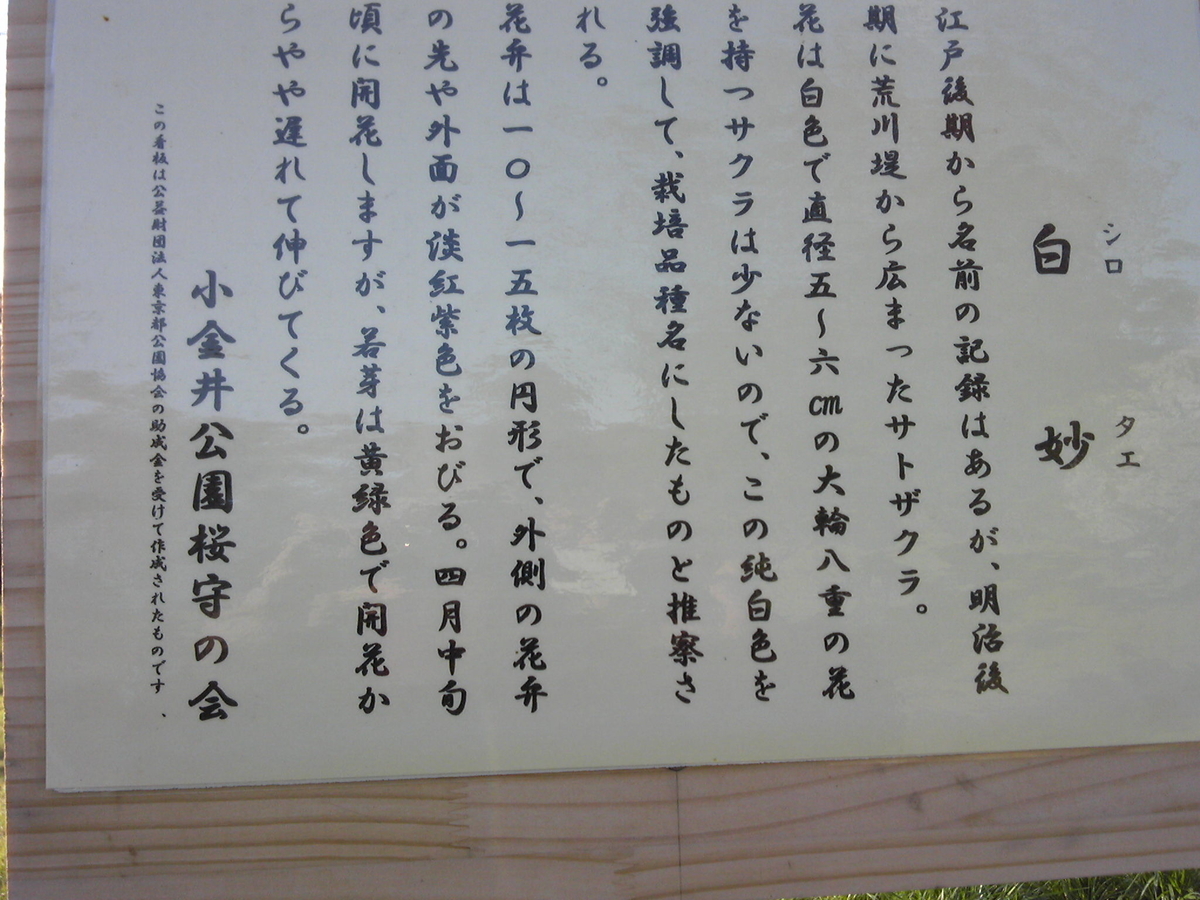 シロ タエ
白 妙
江戸後期から名前の記録はあるが、明治後
期に荒川堤から広まったサトザクラ。
花は白色で直径五～六㎝の大輪八重の花
を持つサクラは少ないので、この純白色を
強調して、栽培品種名にしたものと推察さ
れる。
花弁は一〇～一五枚の円形で、外側の花弁
の先や外面が淡紅紫色をおびる。四月中旬
頃に開花しますが、若芽は黄緑色で開花か
らやや遅れて伸びてくる。
小金井公園桜守の会
この看板は公益財団法人東京都公園協会の助成金を受けて作成されたものです、